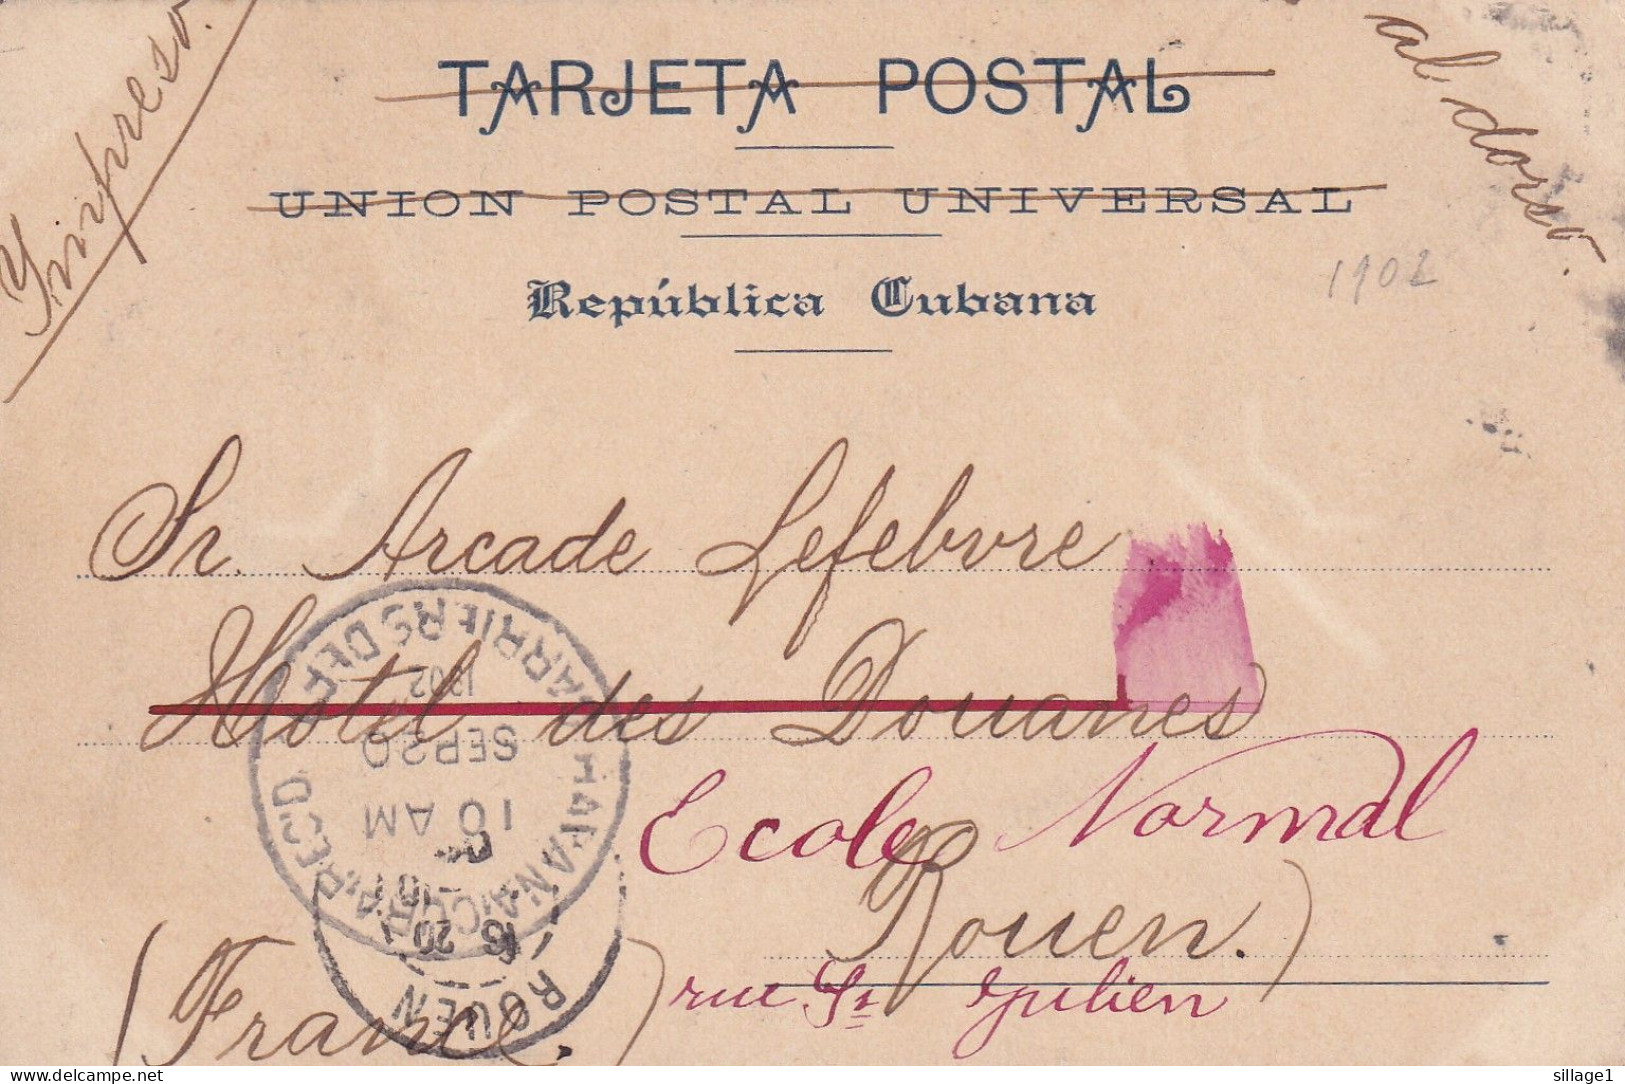 Impreso.
al dorso.
TARJETA POSTAL
UNION POSTAL UNIVERSAL
República Cubana
1902
Sr. Arcade Lefebvre
Hotel des Douanes
Ecole Normal
Rouen.)
(France.)
rue St Julien
HAVANA CUBA
CARRIERS DEP
REC'D
1902
SEP 20
10 AM
ROUEN
delcampe.net
sillage1